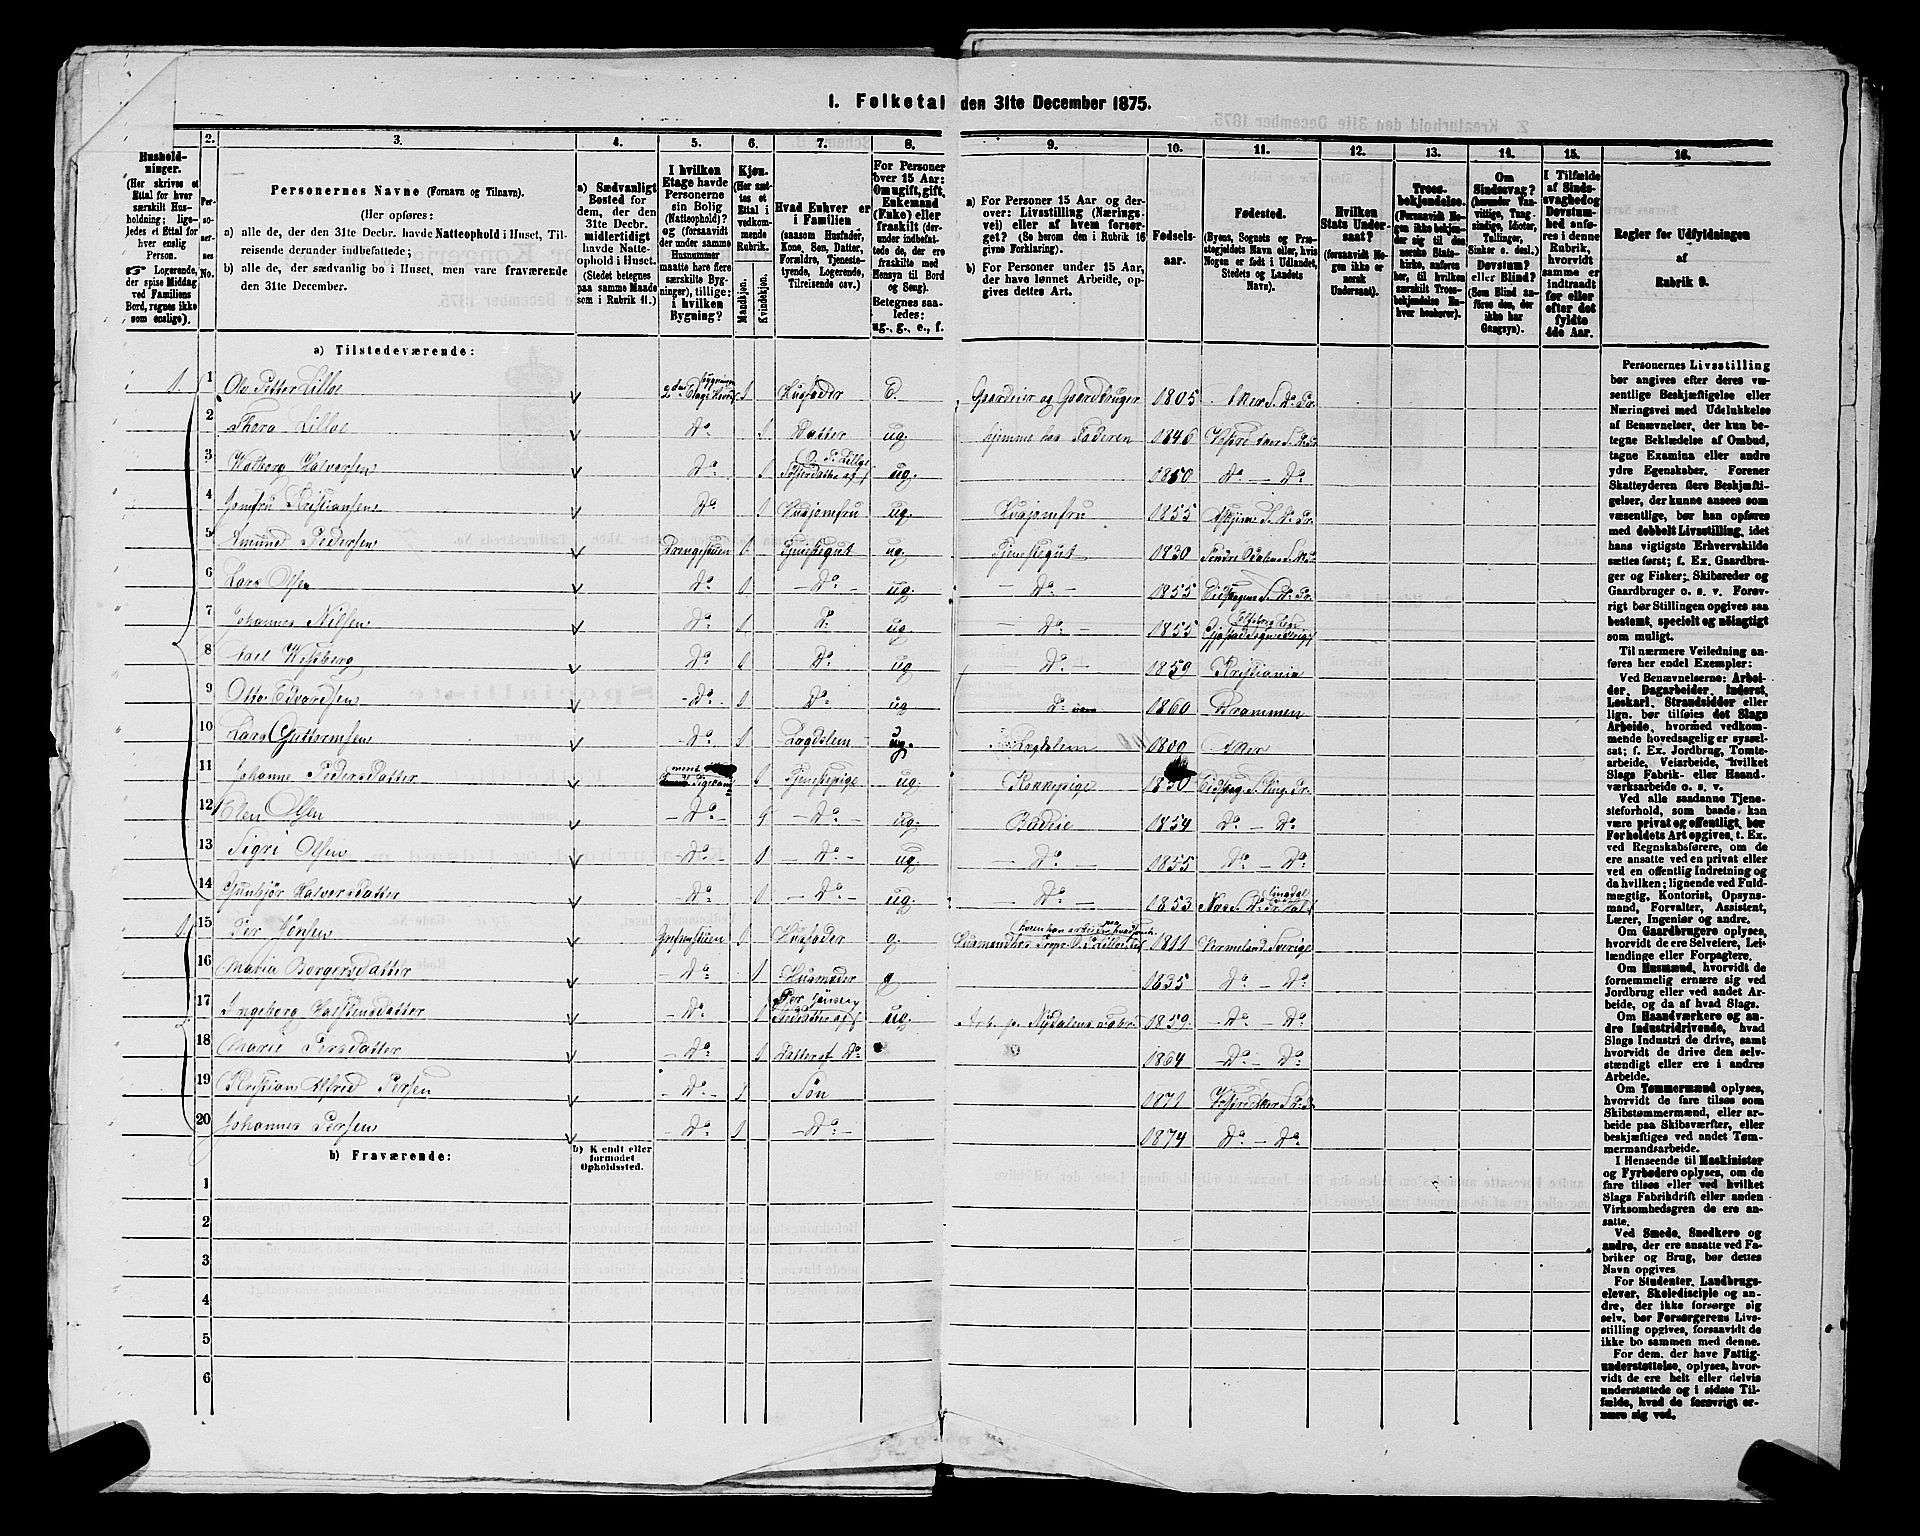 I. Folketal den 31te December 1875.
1.
Hushold-
ninger.
(Her skrives et
Ettal for hver
særskilt Hus-
holdning; lige-
ledes et Ettal for
hver enslig
Person.
☞ Logerende,
der spise Middag
ved Familiens
Bord, regnes ikke
som enslige).
2.
Per-
so-
ner-
nes
No.
3.
Personernes Navne (Fornavn og Tilnavn).
(Her opføres:
a) alle de, der den 31te Decbr. havde Natteophold i Huset, Til-
reisende derunder indbefattede;
b) alle de, der sædvanlig bo i Huset, men vare fraværende
den 31te December.
4.
a) Sædvanligt
Bosted for
dem, der den
31te Decbr.
midlertidigt
havde Natte-
ophold i Huset.
(Stedet betegnes
paa samme Maade
som i Rubrik 11.)
5.
I hvilken
Etage havde
Personerne
sin Bolig
(Natteophold)?
og (forsaavidt
der under samme
Husnummer
maatte høre flere
særskilte Byg-
ninger), tillige:
i hvilken
Bygning?
6.
Kjøn.
(Her sæt-
tes et
Ettal i
vedkom-
mende
Rubrik.)
Mandkjøn.
Kvindekjøn.
7.
Hvad Enhver er
i Familien
(saasom Husfader,
Kone, Søn, Datter,
Forældre, Tjeneste-
tyende, Logerende,
Tilreisende osv.)
8.
For Personer
over 15 Aar:
Om ugift, gift,
Enkemand
(Enke) eller
fraskilt (der-
under indbefat-
tede de, der ere
fraskilte med
Hensyn til Bord
og Seng).
Betegnes saa-
ledes:
ug., g., e., f.
9.
a) For Personer 15 Aar og der-
over: Livsstilling (Nærings-
vei) eller af hvem forsør-
get? (Se herom den i Rubrik 16
givne Forklaring).
b) For Personer under 15 Aar,
der have lønnet Arbeide, op-
gives dettes Art.
10.
Fødsels-
aar.
11.
Fødested.
(Byens, Sognets og Præ-
stegjeldets Navn eller, hvis
Nogen er født i Udlandet,
Stedets og Landets
Navn).
12.
Hvilken
Stats Under-
saat?
(forsaavidt No-
gen ikke er
norsk
Undersaat).
13.
Troes-
bekjendelse.
(Forsaavidt No-
gen ikke bekjen-
der sig til den
norske Stats-
kirke, anføres
her, til hvilken
særskilt Troes-
bekjendelse En-
hver henhører).
14.
Om
Sindssvag?
(herunder Van-
vittige, Tung-
sindige, Idioter,
Tullinger,
Sinker o. desl.)
Døvstum?
eller Blind?
(Som Blind an-
føres den, der
ikke har
Gangsyn).
15.
I Tilfælde
af Sinds-
svaghed og
Døvstum-
hed anfø-
res i denne
Rubrik,
hvorvidt
samme er
indtraadt
før eller
efter det
fyldte
4de Aar.
16.
Regler for Udfyldningen
af
Rubrik 9.
a) Tilstedeværende:
1 1 Ole Petter Lilloe 2den Etage 1 Husfader E. Gaardeier og Gaardbruger 1805 Aker S. Do Pr.
2 Thora Lilloe Do 1 Datter ug. hjemme hos Faderen 1846 Vestre Aker S. Do Pr
3 Valborg Halvorsen Do 1 Søsterdatter af O. P. Lilloe ug. 1850 Do — Do
4 Jomfru Kristiansen Do 1 Husjomfru ug. Husjomfru 1855 S. Do Pr.
5 Amund Pedersen Drengestuen 1 Tjenestegut ug. Tjenestegut 1830 Søndre
6 Lars Olsen Do 1 — Do — ug — Do — 1855 S. Do Pr.
7 Johannes Nilsen Do 1 Do ug — Do — 1855
8 Axel Do 1 Do ug Do 1859 Kristiania
9 Otto Edvardsen Do 1 Do ug Do 1860 Drammen
10 Lars Guttormsen — Do — 1 Lagdslem ug. Lagdslem 1800 Aker
11 Johanne Pedersdatter 1 Tjenestepige ug. Kokkepige 1850
12 Elen Olsen — Do — 1 — Do — ug. Budeie 1854 Do — Do
13 Sigri Olsen — Do — 1 — Do — ug. — Do — 1855 Do — Do
14 Gunbjør Halvorsdatter — Do — 1 — Do — ug. — Do — 1853
1 15 Per Jensen 1 Husfader g. 1811 Vermeland Sverige
16 Maria Borgersdatter — Do — 1 Husmoder g 1835 Do — Do
17 Ingeborg Halstensdatter — Do — 1 Stedatter af Per Jensen ug. Arb. p. Nydalens 1859 — Do — Do
18 Marie Persdatter — Do — 1 Datter af Do 1864 — Do — Do
19 Kristian Alfred Persen — Do — 1 Søn 1871 Vestre Aker S. Do
20 Johannes Persen — Do — 1 — Do — 1874 Do — Do
b) Fraværende:
b) Kjendt eller
formodet
Opholdssted.
1
2
3
4
5
6
Personernes Livsstilling
bør angives efter deres væ-
sentlige Beskjæftigelse eller
Næringsvei med Udelukkelse
af Benævnelser, der kun be-
tegne Beklædelse af Ombud,
tagne Examina eller andre
ydre Egenskaber. Forener
Skatteyderen flere Beskjæfti-
gelser, der kunne ansees som
væsentlige, bør han opføres
med dobbelt Livsstilling, idet
hans vigtigste Erhvervskilde
sættes først; f. Ex. Gaardbru-
ger og Fisker; Skibsreder og
Gaardbruger o. s. v. Forøv-
rigt bør Stillingen opgives saa
bestemt, specielt og nøiagtigt
som muligt.
Til nærmere Veiledning an-
føres her endel Exempler:
Ved Benævnelserne: Arbei-
der, Dagarbeider, Inderst,
Løskarl, Strandsidder eller
lign. bør tilføies det Slags
Arbeide, hvormed vedkom-
mende hovedsagelig er syssel-
sat; f. Ex. Jordbrug, Tomte-
arbeide, Veiarbeide, hvilket
Slags Fabrik- eller Haand-
værksarbeide o. s. v.
Ved alle saadanne Tjene-
steforhold, som baade kan
være privat og offentligt, bør
Forholdets Art opgives, t. Ex.
ved Regnskabsførere, om de
ere ansatte ved en privat eller
ved en offentlig Indretning og
da hvilken; lignende ved Fuld-
mægtig, Kontorist, Opsyns-
mand, Forvalter, Assistent,
Lærer, Ingeniør og andre.
Om Gaardbrugere oplyses,
hvorvidt de ere Selveiere, Lei-
lændinge eller Forpagtere.
Om Husmænd, hvorvidt de
fornemmelig ernære sig ved
Jordbrug eller ved andet Ar-
beide, og da af hvad Slags.
Om Haandværkere og an-
dre Industridrivende, hvad
Slags Industri de drive, samt
hvorvidt de drive den selv-
stændigt eller ere i andres
Arbeide.
Om Tømmermænd oplyses,
hvorvidt de fare tilsøs som
Skibstømmermænd, eller ar-
beide paa Skibsværfter, eller
beskjæftiges ved andet Tøm-
mermandsarbeide.
I Henseende til Maskinister
og Fyrbødere oplyses, om de
fare tilsøs eller ved hvilket
Slags Fabrikdrift eller anden
Virksomhedsgren de ere an-
satte.
Ved Smede, Snedkere og
andre, der ere ansatte ved Fa-
briker og Brug, bør dettes
Navn opgives.
For Studenter, Landbrugs-
elever, Skoledisciple og an-
dre, der ikke forsørge sig
selv, bør Forsørgerens Livs-
stilling opgives, forsaavidt de
ikke bo sammen med denne.
For dem, der have Fattig-
understøttelse, oplyses, hvor-
vidt de ere helt eller delvis
understøttede og i sidste Til-
fælde, hvad de forøvrigt er-
nære sig ved.